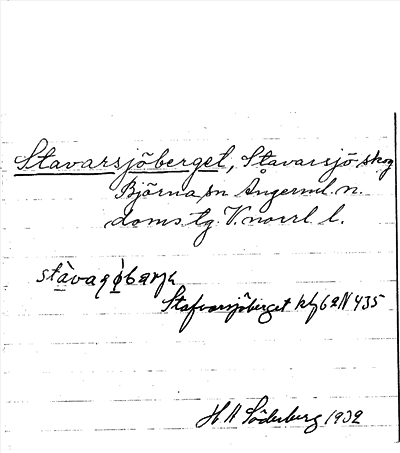 Stavarsjöberget, Stavarsjö skog
Björna sn Ångerml. n.
doms. tg. V. norrl. l.
Stafvarsjöberget kbl 62 N 435
H A Söderberg 1932